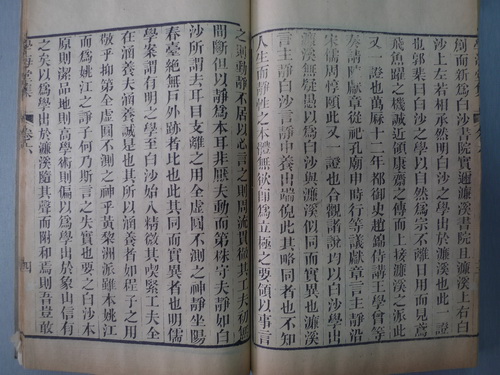 而新爲白沙書院實邇濂溪書院且濂溪上右白
沙上左若相承然明白沙之學出於濂溪也此一證
也郭棐曰白沙之學以自然爲宗不離日用而見鳶
飛魚躍之機誠近領康齋之傳而上接濂溪之派此
又一證也萬厤十二年都御史趙錦侍講王學曾等
奏請陳獻章從祀孔廟行等議獻章言主靜沿
宋儒周惇頤此又一證也合觀諸說均以白沙學出
濂溪無疑是以爲白沙與濂溪似同而實異也濂溪
言主靜白沙言靜中養出端倪此其略同者也不知
人生而靜性之本體無欲卽爲立極之要領以事言
之則動靜不居以心言之則周流貫徹其工夫初無
間斷但以靜爲本耳非厭夫動而第株守夫靜如白
沙所謂去耳目支離之用全虛圓不測之神靜坐陽
春臺絕無戶外跡者比也此其同而實異者也明儒
學案謂有明之學至白沙始入精微其喫緊工夫全
在涵養夫涵養誠是也其所以涵養者如程子之用
敬乎抑第全虛圓不測之神乎黃棃洲派雖本姚江
而爲姚江之諍子何乃斯言之失實也要之白沙本
原則潔品地則高學術則偏以爲學出於象山信有
之矣以爲學出於濂溪隨其聲而附和焉則吾豈敢
學海堂集 卷六 四